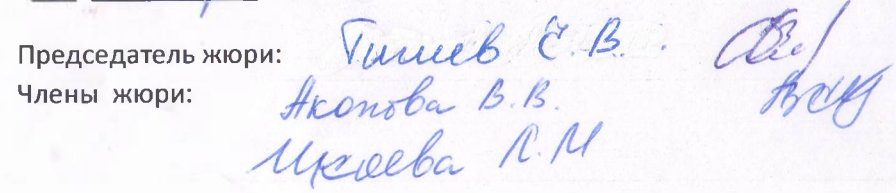 Председатель жюри: Тишев С. В.
Члены жюри: Акопова В. В.
Икоева Л. М